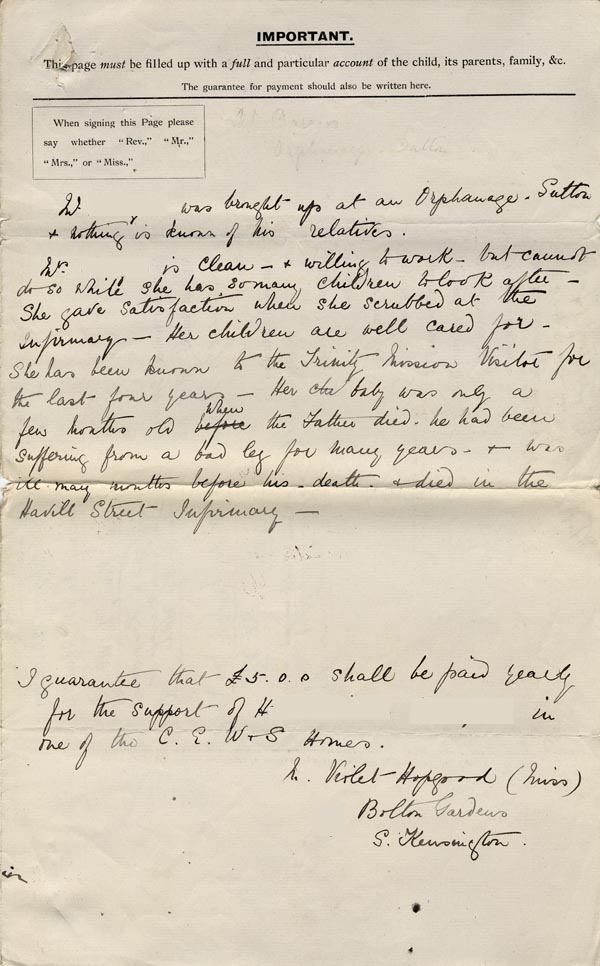 IMPORTANT.
This page must be filled up with a full and particular account of the child, its parents, family, &c.
The guarantee for payment should also be written here.
When signing this Page please
say whether "Rev.," "Mr.,"
"Mrs.," or "Miss.,"
Mr was brought up at an Orphanage. Sutton
& nothing is known of his relatives.
Mrs is clean - & willing to work - but cannot
do so while she has so many children to look after -
She gave satisfaction when she scrubbed at the
Infirmary - Her children are well cared for -
She has been known to the Trinity Mission Visitor for
the last four years - Her baby was only a
few months old before when the Father died. he had been
suffering from a bad leg for many years - & was
ill many months before his death & died in the
Havill Street Infirmary -
I guarantee that £5.0.0 shall be paid yearly
for the support of H in
one of the C. E. W & S Homes.
Violet Hopgood (Miss)
Bolton Gardens
S. Kensington.